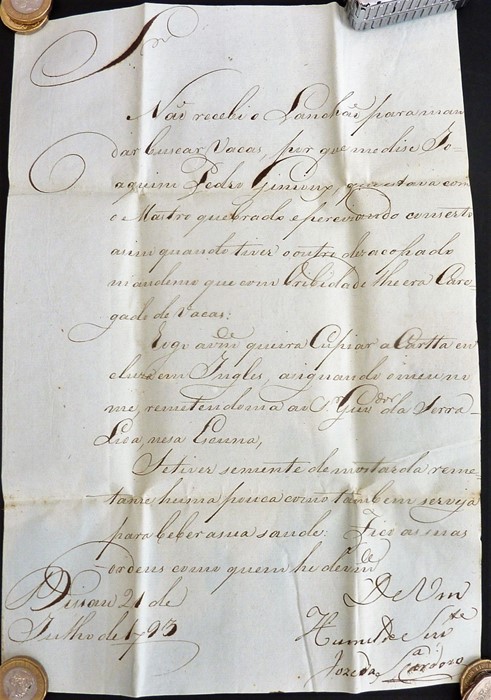 Snr
Não recebi o Lanchão para man
dar buscar Vacas, por que me dise Jo-
aquim Pedro que estava com
o Mastro quebrado e percizando conserto
asim quando tiver o outro dezacopado
mandemo que com bribidade lhe era Care-
gado de vacas:
Rogo a vm queira Cupiar a Cartta en
cluza em Ingles, asignando o meu no
me, remetendoma ao Sr. Govdor da Serra
Lioa, nesa Escuna,
Se tiver semente de mostarda reme-
tame huma pouca como também serveja
para beber a sua saude: Fico as suas
ordens como quem he de vmce
De Vm
Bissau 21 de
Julho de 1793
Humilde Servte
Joze da Sa Cardozo